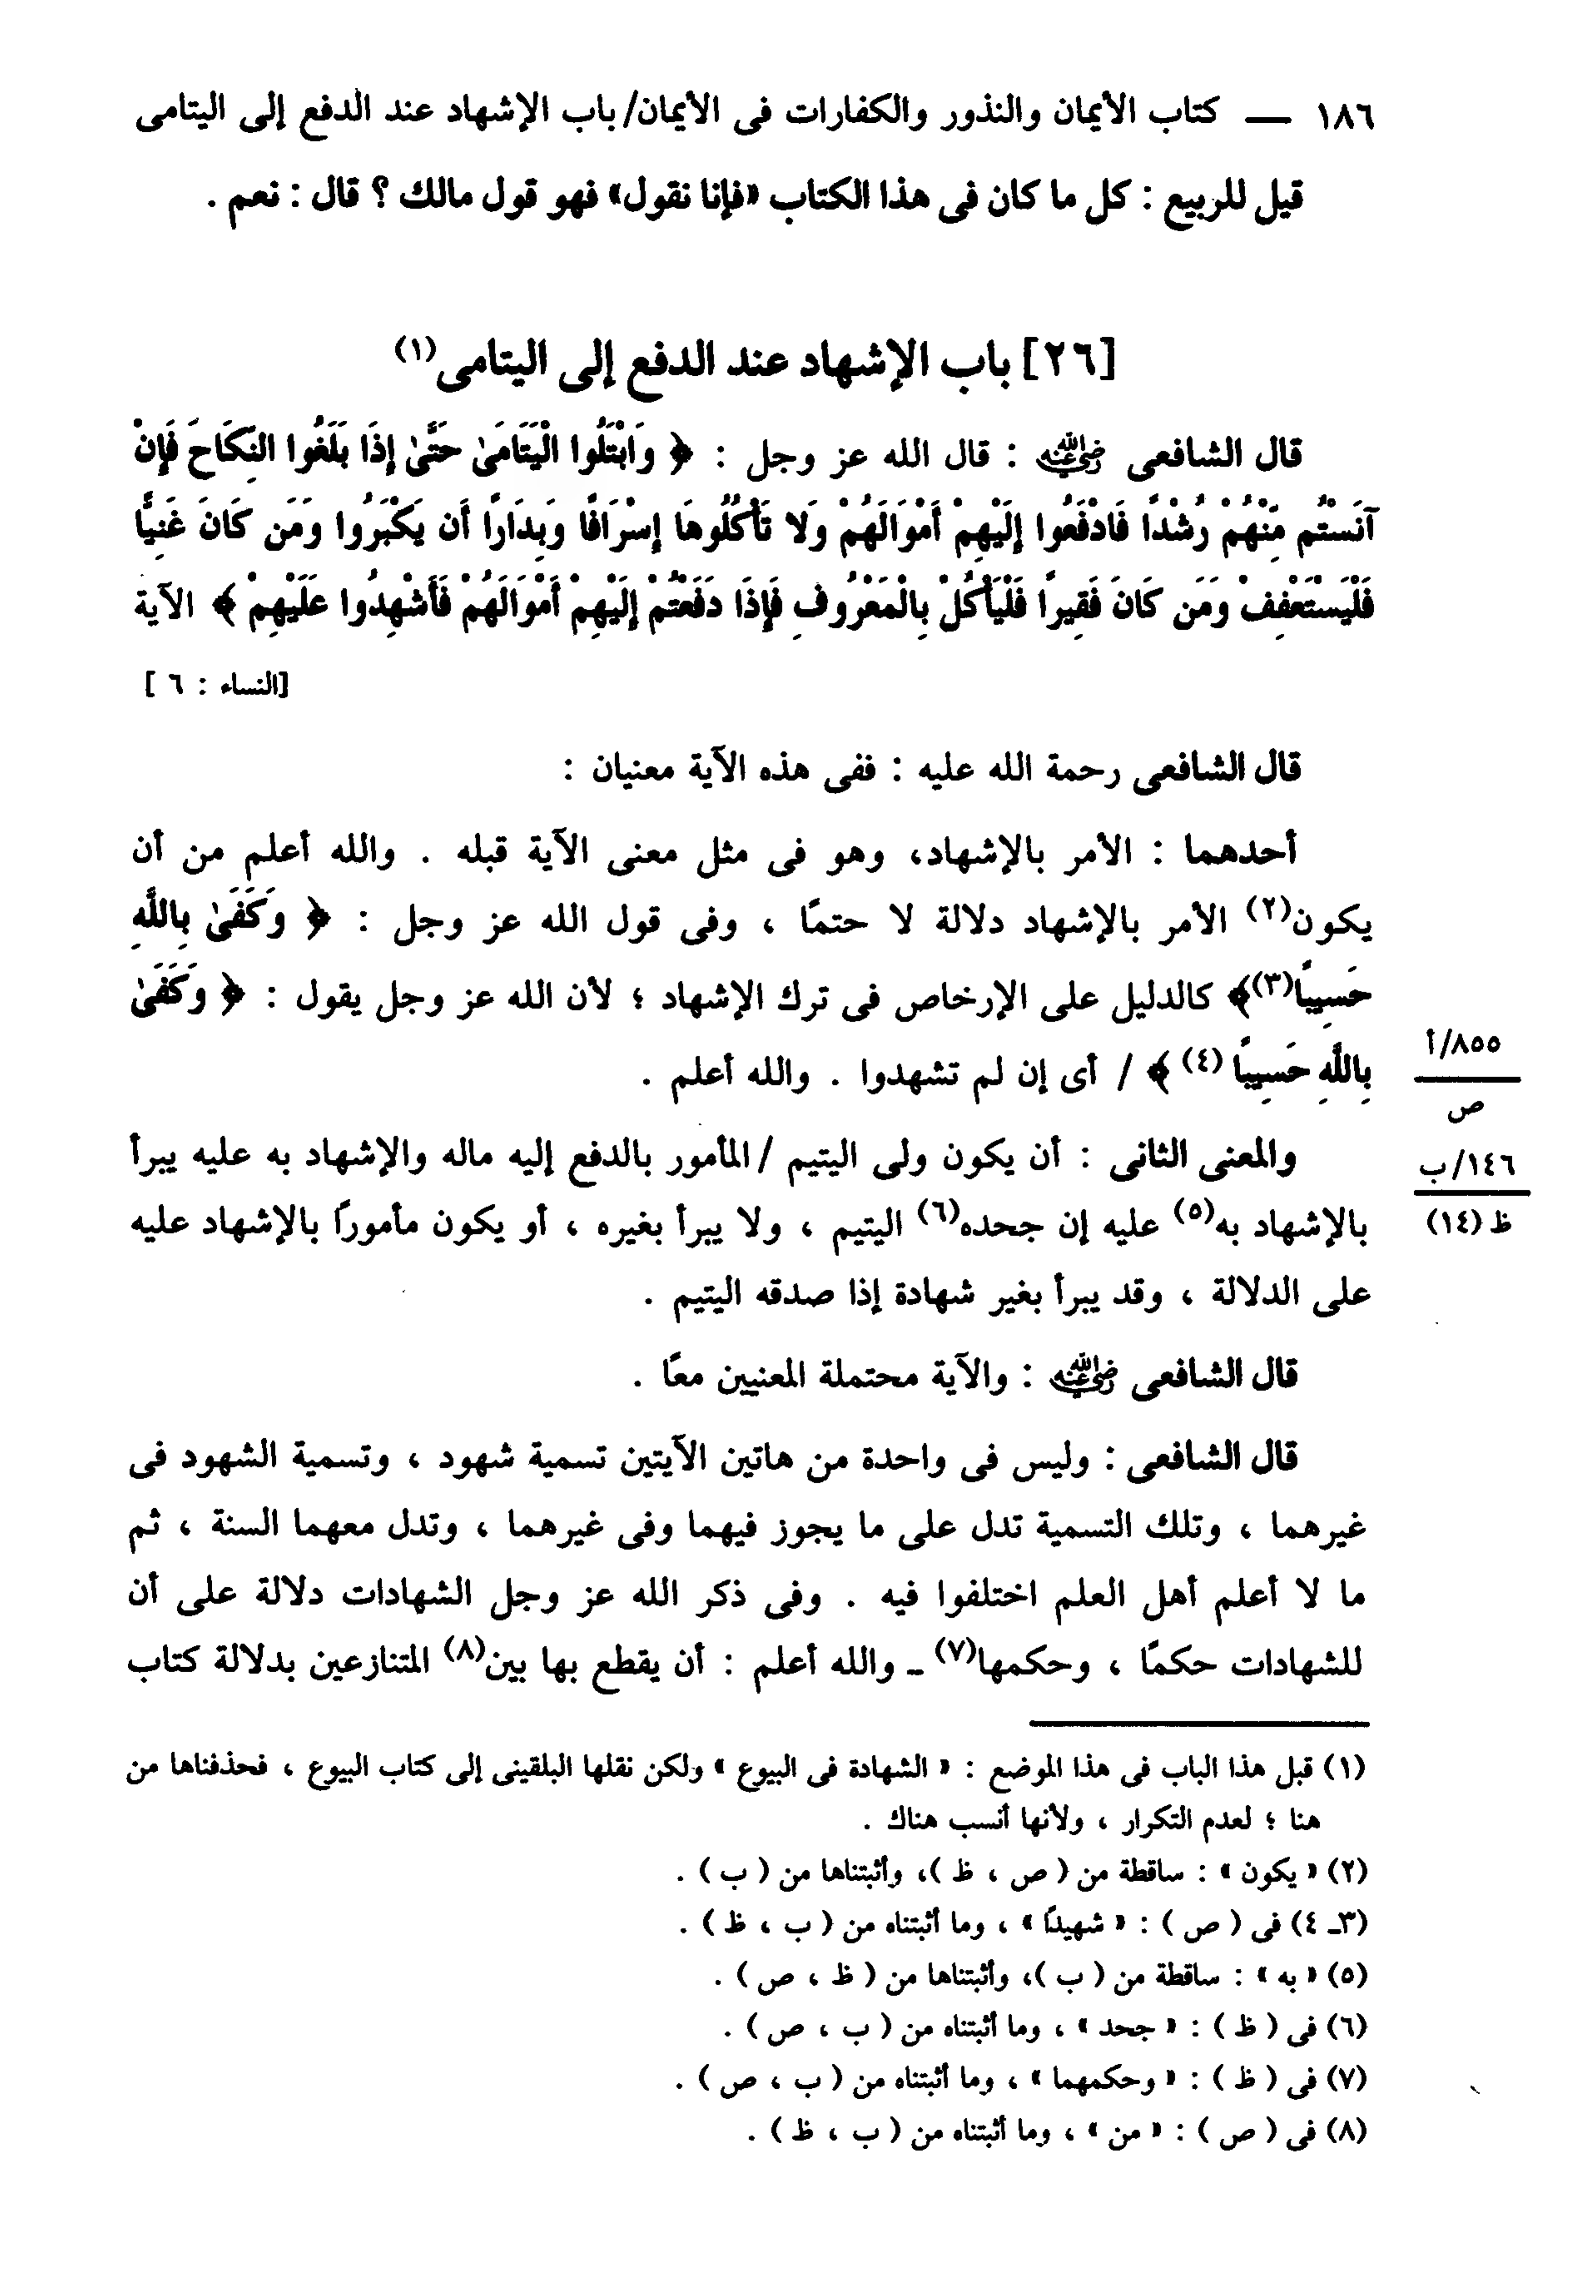 ١٨٦ — كتاب الأيمان والنذور والكفارات فى الأيمان/ باب الإشهاد عند الدفع إلى اليتامى
قيل للربيع : كل ما كان فى هذا الكتاب «فإنا نقول» فهو قول مالك ؟ قال : نعم .
[٢٦] باب الإشهاد عند الدفع إلى اليتامى(١)
قال الشافعى رضي الله عنه : قال الله عز وجل : ﴿ وَابْتَلُوا الْيَتَامَىٰ حَتَّىٰ إِذَا بَلَغُوا النِّكَاحَ فَإِنْ
آنَسْتُم مِّنْهُمْ رُشْدًا فَادْفَعُوا إِلَيْهِمْ أَمْوَالَهُمْ وَلا تَأْكُلُوهَا إِسْرَافًا وَبِدَارًا أَن يَكْبَرُوا وَمَن كَانَ غَنِيًّا
فَلْيَسْتَعْفِفْ وَمَن كَانَ فَقِيرًا فَلْيَأْكُلْ بِالْمَعْرُوفِ فَإِذَا دَفَعْتُمْ إِلَيْهِمْ أَمْوَالَهُمْ فَأَشْهِدُوا عَلَيْهِمْ ﴾ الآية
[النساء : ٦ ]
قال الشافعى رحمة الله عليه : ففى هذه الآية معنيان :
أحدهما : الأمر بالإشهاد، وهو فى مثل معنى الآية قبله . والله أعلم من أن
يكون(٢) الأمر بالإشهاد دلالة لا حتمًا ، وفى قول الله عز وجل : ﴿ وَكَفَىٰ بِاللَّهِ
حَسِيبًا(٣)﴾ كالدليل على الإرخاص فى ترك الإشهاد ؛ لأن الله عز وجل يقول : ﴿ وَكَفَىٰ
بِاللَّهِ حَسِيبًا (٤) ﴾ / أى إن لم تشهدوا . والله أعلم .
٨٥٥/أ
ص
والمعنى الثانى : أن يكون ولى اليتيم /المأمور بالدفع إليه ماله والإشهاد به عليه يبرأ
١٤٦/ب
ظ (١٤)
بالإشهاد به(٥) عليه إن جحده(٦) اليتيم ، ولا يبرأ بغيره ، أو يكون مأمورًا بالإشهاد عليه
على الدلالة ، وقد يبرأ بغير شهادة إذا صدقه اليتيم .
قال الشافعى رضي الله عنه : والآية محتملة المعنيين معًا .
قال الشافعى : وليس فى واحدة من هاتين الآيتين تسمية شهود ، وتسمية الشهود فى
غيرهما ، وتلك التسمية تدل على ما يجوز فيهما وفى غيرهما ، وتدل معهما السنة ، ثم
ما لا أعلم أهل العلم اختلفوا فيه . وفى ذكر الله عز وجل الشهادات دلالة على أن
للشهادات حكمًا ، وحكمها(٧) ـ والله أعلم : أن يقطع بها بين(٨) المتنازعين بدلالة كتاب
(١) قبل هذا الباب فى هذا الموضع : « الشهادة فى البيوع » ولكن نقلها البلقينى إلى كتاب البيوع ، فحذفناها من
هنا ؛ لعدم التكرار ، ولأنها أنسب هناك .
(٢) « يكون » : ساقطة من ( ص ، ظ )، وأثبتناها من ( ب ) .
(٣ـ ٤) فى ( ص ) : « شهيدًا » ، وما أثبتناه من ( ب ، ظ ) .
(٥) « به » : ساقطة من ( ب )، وأثبتناها من ( ظ ، ص ) .
(٦) فى ( ظ ) : « جحد » ، وما أثبتناه من ( ب ، ص ) .
(٧) فى ( ظ ) : « وحكمهما » ، وما أثبتناه من ( ب ، ص ) .
(٨) فى ( ص ) : « من » ، وما أثبتناه من ( ب ، ظ ) .